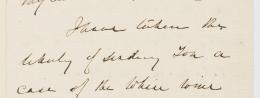 I have taken the
liberty of sending You a
case of the White wine